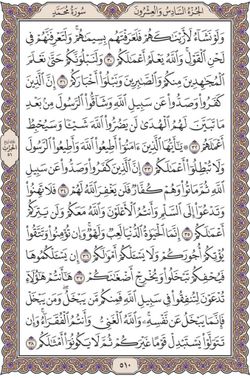 الجزء السادس والعشرون سورة محمد
ولو نشاء لأرينكهم فلعرفتهم بسيمهم ولتعرفنهم في
لحن القول والله يعلم أعملكم ٣٠ ولنبلونكم حتى نعلم
المجهدين منكم والصبرين ونبلوا أخباركم ٣١ إن الذين
كفروا وصدوا عن سبيل الله وشاقوا الرسول من بعد
ما تبين لهم الهدى لن يضروا الله شيئا وسيحبط
أعملهم ٣٢ يأيها الذين ءامنوا أطيعوا الله وأطيعوا الرسول
ولا تبطلوا أعملكم ٣٣ إن الذين كفروا وصدوا عن سبيل
الله ثم ماتوا وهم كفار فلن يغفر الله لهم ٣٤ فلا تهنوا
وتدعوا إلى السلم وأنتم الأعلون والله معكم ولن يتركم
أعملكم ٣٥ إنما الحيوة الدنيا لعب ولهو وإن تؤمنوا وتتقوا
يؤتكم أجوركم ولا يسلكم أمولكم ٣٦ إن يسلكموها
فيحفكم تبخلوا ويخرج أضغنكم ٣٧ هأنتم هؤلاء
تدعون لتنفقوا في سبيل الله فمنكم من يبخل ومن يبخل
فإنما يبخل عن نفسه والله الغني وأنتم الفقراء وإن
تتولوا يستبدل قوما غيركم ثم لا يكونوا أمثلكم ٣٨
٥١٠